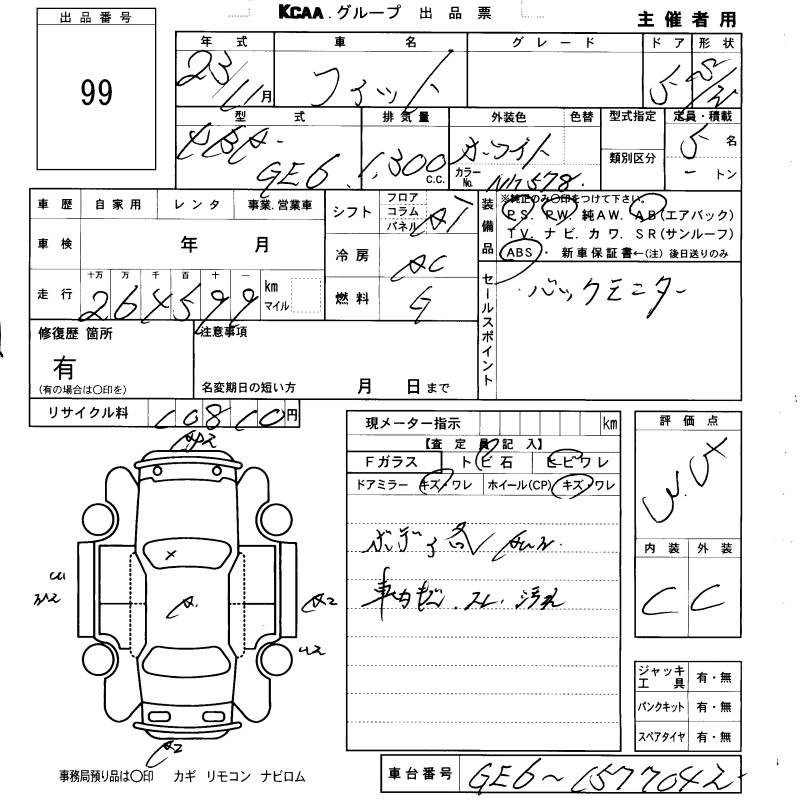 KCAA グループ 出品票
主催者用
出品番号
99
年式 車名 グレード ドア 形状
23/11月 フィット 5
型式 排気量 外装色 色替 型式指定 定員・積載
GE6 1,300 C.C. ホワイト カラーNo. NH578. 類別区分 5名
- トン
車歴 自家用 レンタ 事業.営業車
車検 年 月
走行 十万 万 千 百 十 一 km マイル
264599
シフト フロア コラム パネル AT
冷房 AC
燃料 G
装備品 ※純正のみ〇印をつけて下さい。
PS. PW. 純AW. AB(エアバック)
TV. ナビ. カワ. SR(サンルーフ)
ABS・ 新車保証書←(注) 後日送りのみ
セールスポイント バックモニター
修復歴 箇所
有
(有の場合は〇印を)
注意事項
名変期日の短い方 月 日まで
リサイクル料 10810円
現メーター指示 km
【査定員記入】
Fガラス トビ石 ヒビワレ
ドアミラー キズ・ワレ ホイール(CP) キズ・ワレ
ボディ各
汚れ
評価点
内装 外装
C C
A2
A2
A2
ジャッキ工具 有・無
パンクキット 有・無
スペアタイヤ 有・無
事務局預り品は〇印 カギ リモコン ナビロム
車台番号 GE6~1577042